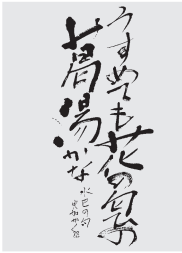 うすめても花の匂の
葛湯かな
水巴の句